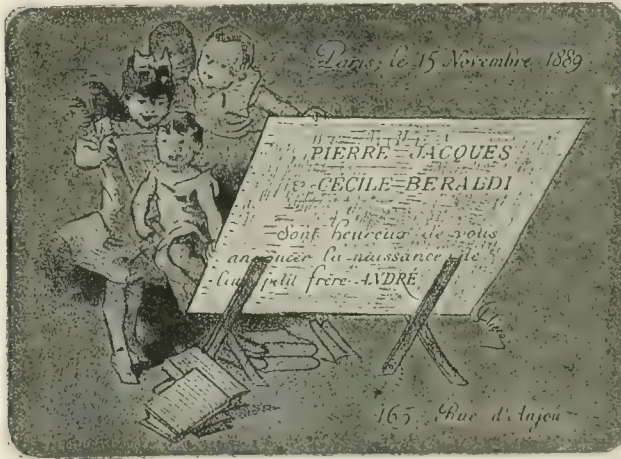 Paris, le 15 Novembre 1889
PIERRE = JACQUES
CÉCILE = BERALDI
Sont heureux de vous
annoncer la naissance de
leur petit frère ANDRÉ
165, Rue d'Anjou